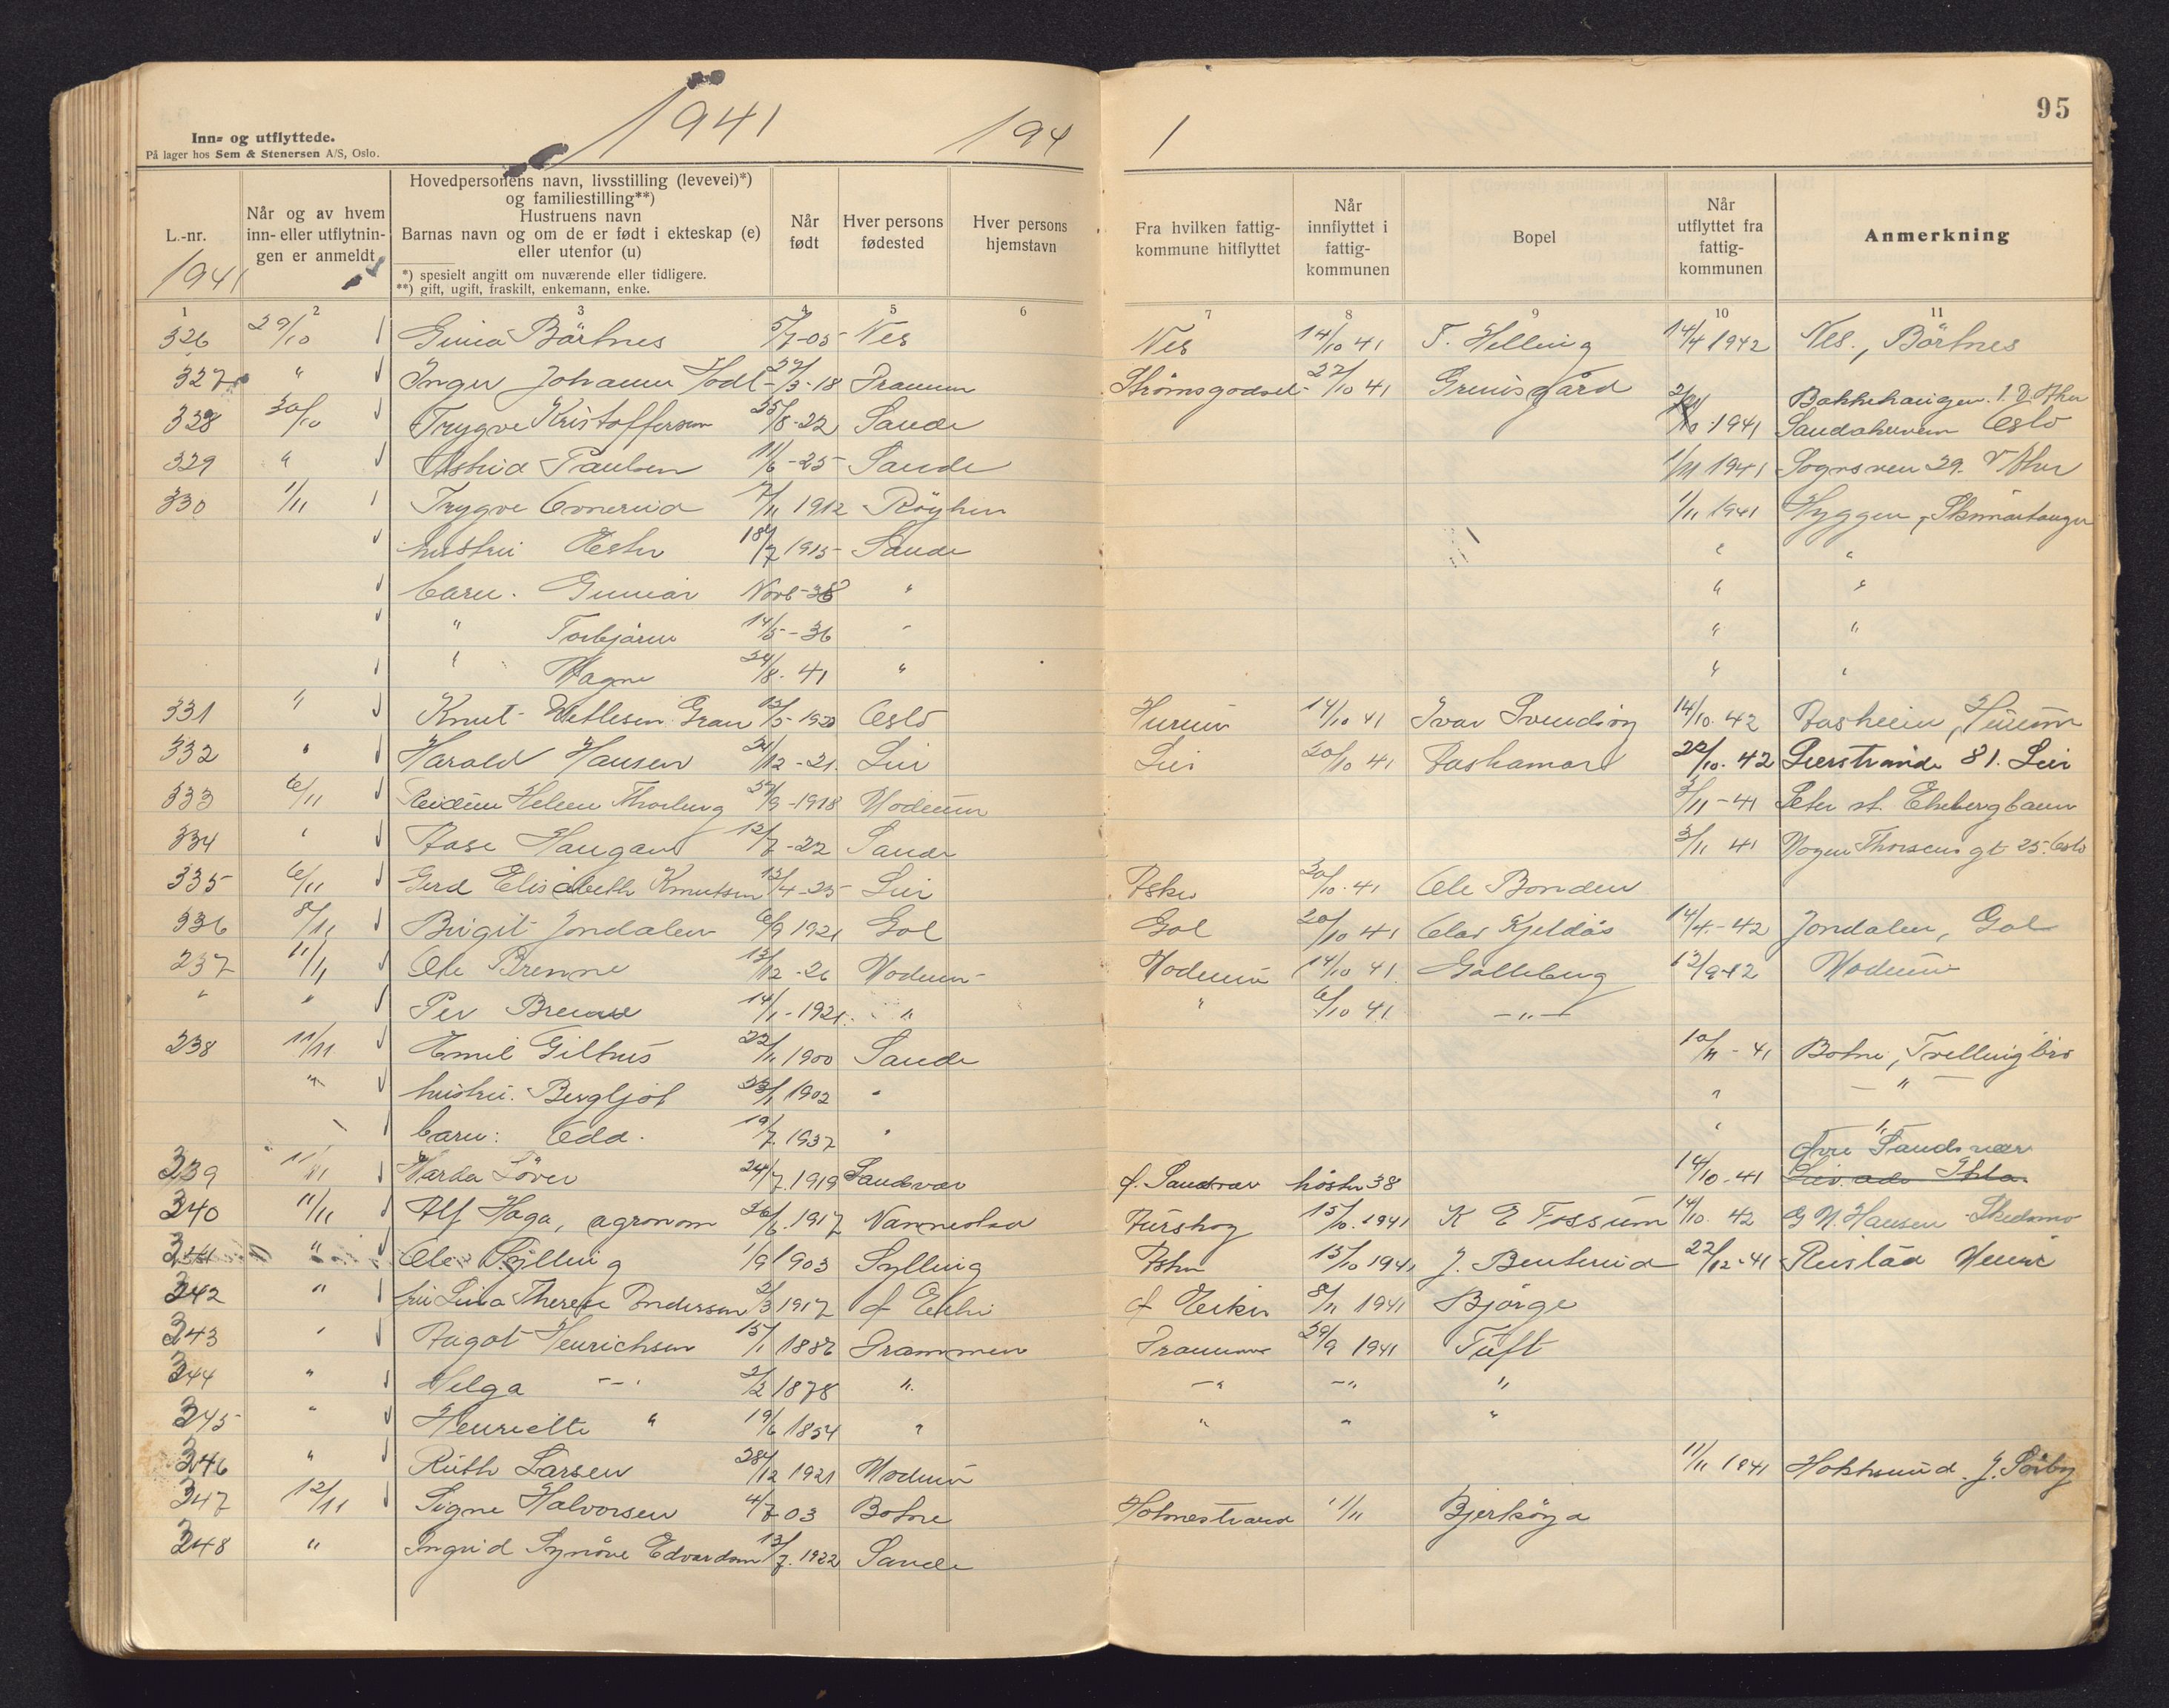 1941
194 1
95
Inn- og utflyttede.
På lager hos Sem & Stenersen A/S, Oslo.
L.-nr.
1941
Når og av hvem inn- eller utflytningen er anmeldt
Hovedpersonens navn, livsstilling (levevei)*) og familiestilling**)
Hustruens navn
Barnas navn og om de er født i ekteskap (e) eller utenfor (u)
*) spesielt angitt om nuværende eller tidligere.
**) gift, ugift, fraskilt, enkemann, enke.
Når født
Hver persons fødested
Hver persons hjemstavn
Fra hvilken fattigkommune hitflyttet
Når innflyttet i fattigkommunen
Bopel
Når utflyttet fra fattigkommunen
Anmerkning
1 2 3 4 5 6 7 8 9 10 11
326 29/10 Börtnes 5/7-05 Nes Nes 14/10 41 T. Helling 14/4 1942 Nes., Börtnes
327 " Inger Johanne 27/3-18 Drammen Strömsgodset 22/10 41 Grensgård
328 30/10 Trygve Kristoffersen 25/8-22 Sande 10-1941 Oslo
329 " Astrid Paulsen 11/6-25 Sande 1/11 1941 Sognsveien 29. V Aker
330 1/11 Trygve 7/11 1912 Röyken 1/11 1941 Hyggen,
hustru Ester 18/7 1915 Sande " "
barn. Gunnar Novb-38 " " "
" Torbjörn 14/5-36 " " "
" Magne 24/8-41 " " "
331 " Knut Gran 13/5-1920 Oslo Hurum 14/10 41 Ivar Svendsrög 14/10-42 Aasheim, Hurum
332 " Harald Hansen 24/12-21. Lier Lier 20/10 41 Aashamar 22/10-42 Lierstranda 81. Lier
333 6/11 Reidun Helene 27/9-1918 Modum 3/11-41 Peter st. Ekebergbanen
334 " Aase Haugan 12/7-22 Sande 3/11 41 Mogens Thorsens gt 25. Oslo
335 6/11 Gerd Elisabeth Knutsen 13/4-25 Lier Asker 20/10-41 Ole Bonden
336 8/11 Birgit Jondalen 6/9 1921 Gol Gol 20/10 41 Olav Kjeldås 14/4-42 Jondalen, Gol
237 11/11 Ole Brenne 13/12-26 Modum Modum 14/10 41 Golleberg 12/9-42 Modum
" " Per Brenne 14/1-1921. " " 6/10 41 -"-
238 11/11 Emil Gilhus 22/11 1900 Sande 10/11-41 Botne,
" hustru. Bergljot 23/1 1902 " " -"-
barn: Odd. 19/7 1937 " " "
239 11/11 Marda Löver 24/7.1919 Sandsvær Ö. Sandsvær hösten 38 14/10-41 Övre Sandsvær
340 11/11 Alf Haga, agronom 26/6.1917 Aurskog 15/10.1941 K E Fossum 14/10 42 G N. Hansen Skedsmo
341 " Ole Sylling 1/9 1903 Sylling Asker 15/10 1941 J. Benterud 22/12-41
342 " Lina Therese Andersen 2/3 1917 Ö Eiker Ö Eiker 8/11 1941 Bjørge
343 " Aagot Henrichsen 15/1 1886 Drammen Drammen 29/9 1941 Tuft
344 " Helga -"- 2/2 1878 " -"- -"- "
345 " Henriette " 19/6 1854 " " " "
346 " Ruth Larsen 28/12 1921 Modum 11/11 1941 Hokksund. J. Sörby
347 12/11 Signe Halvorsen 4/7 03 Botne Holmestrand 11/11 Bjerköya
348 " Ingrid Synöve Edvardsen 13/7.1922 Sande